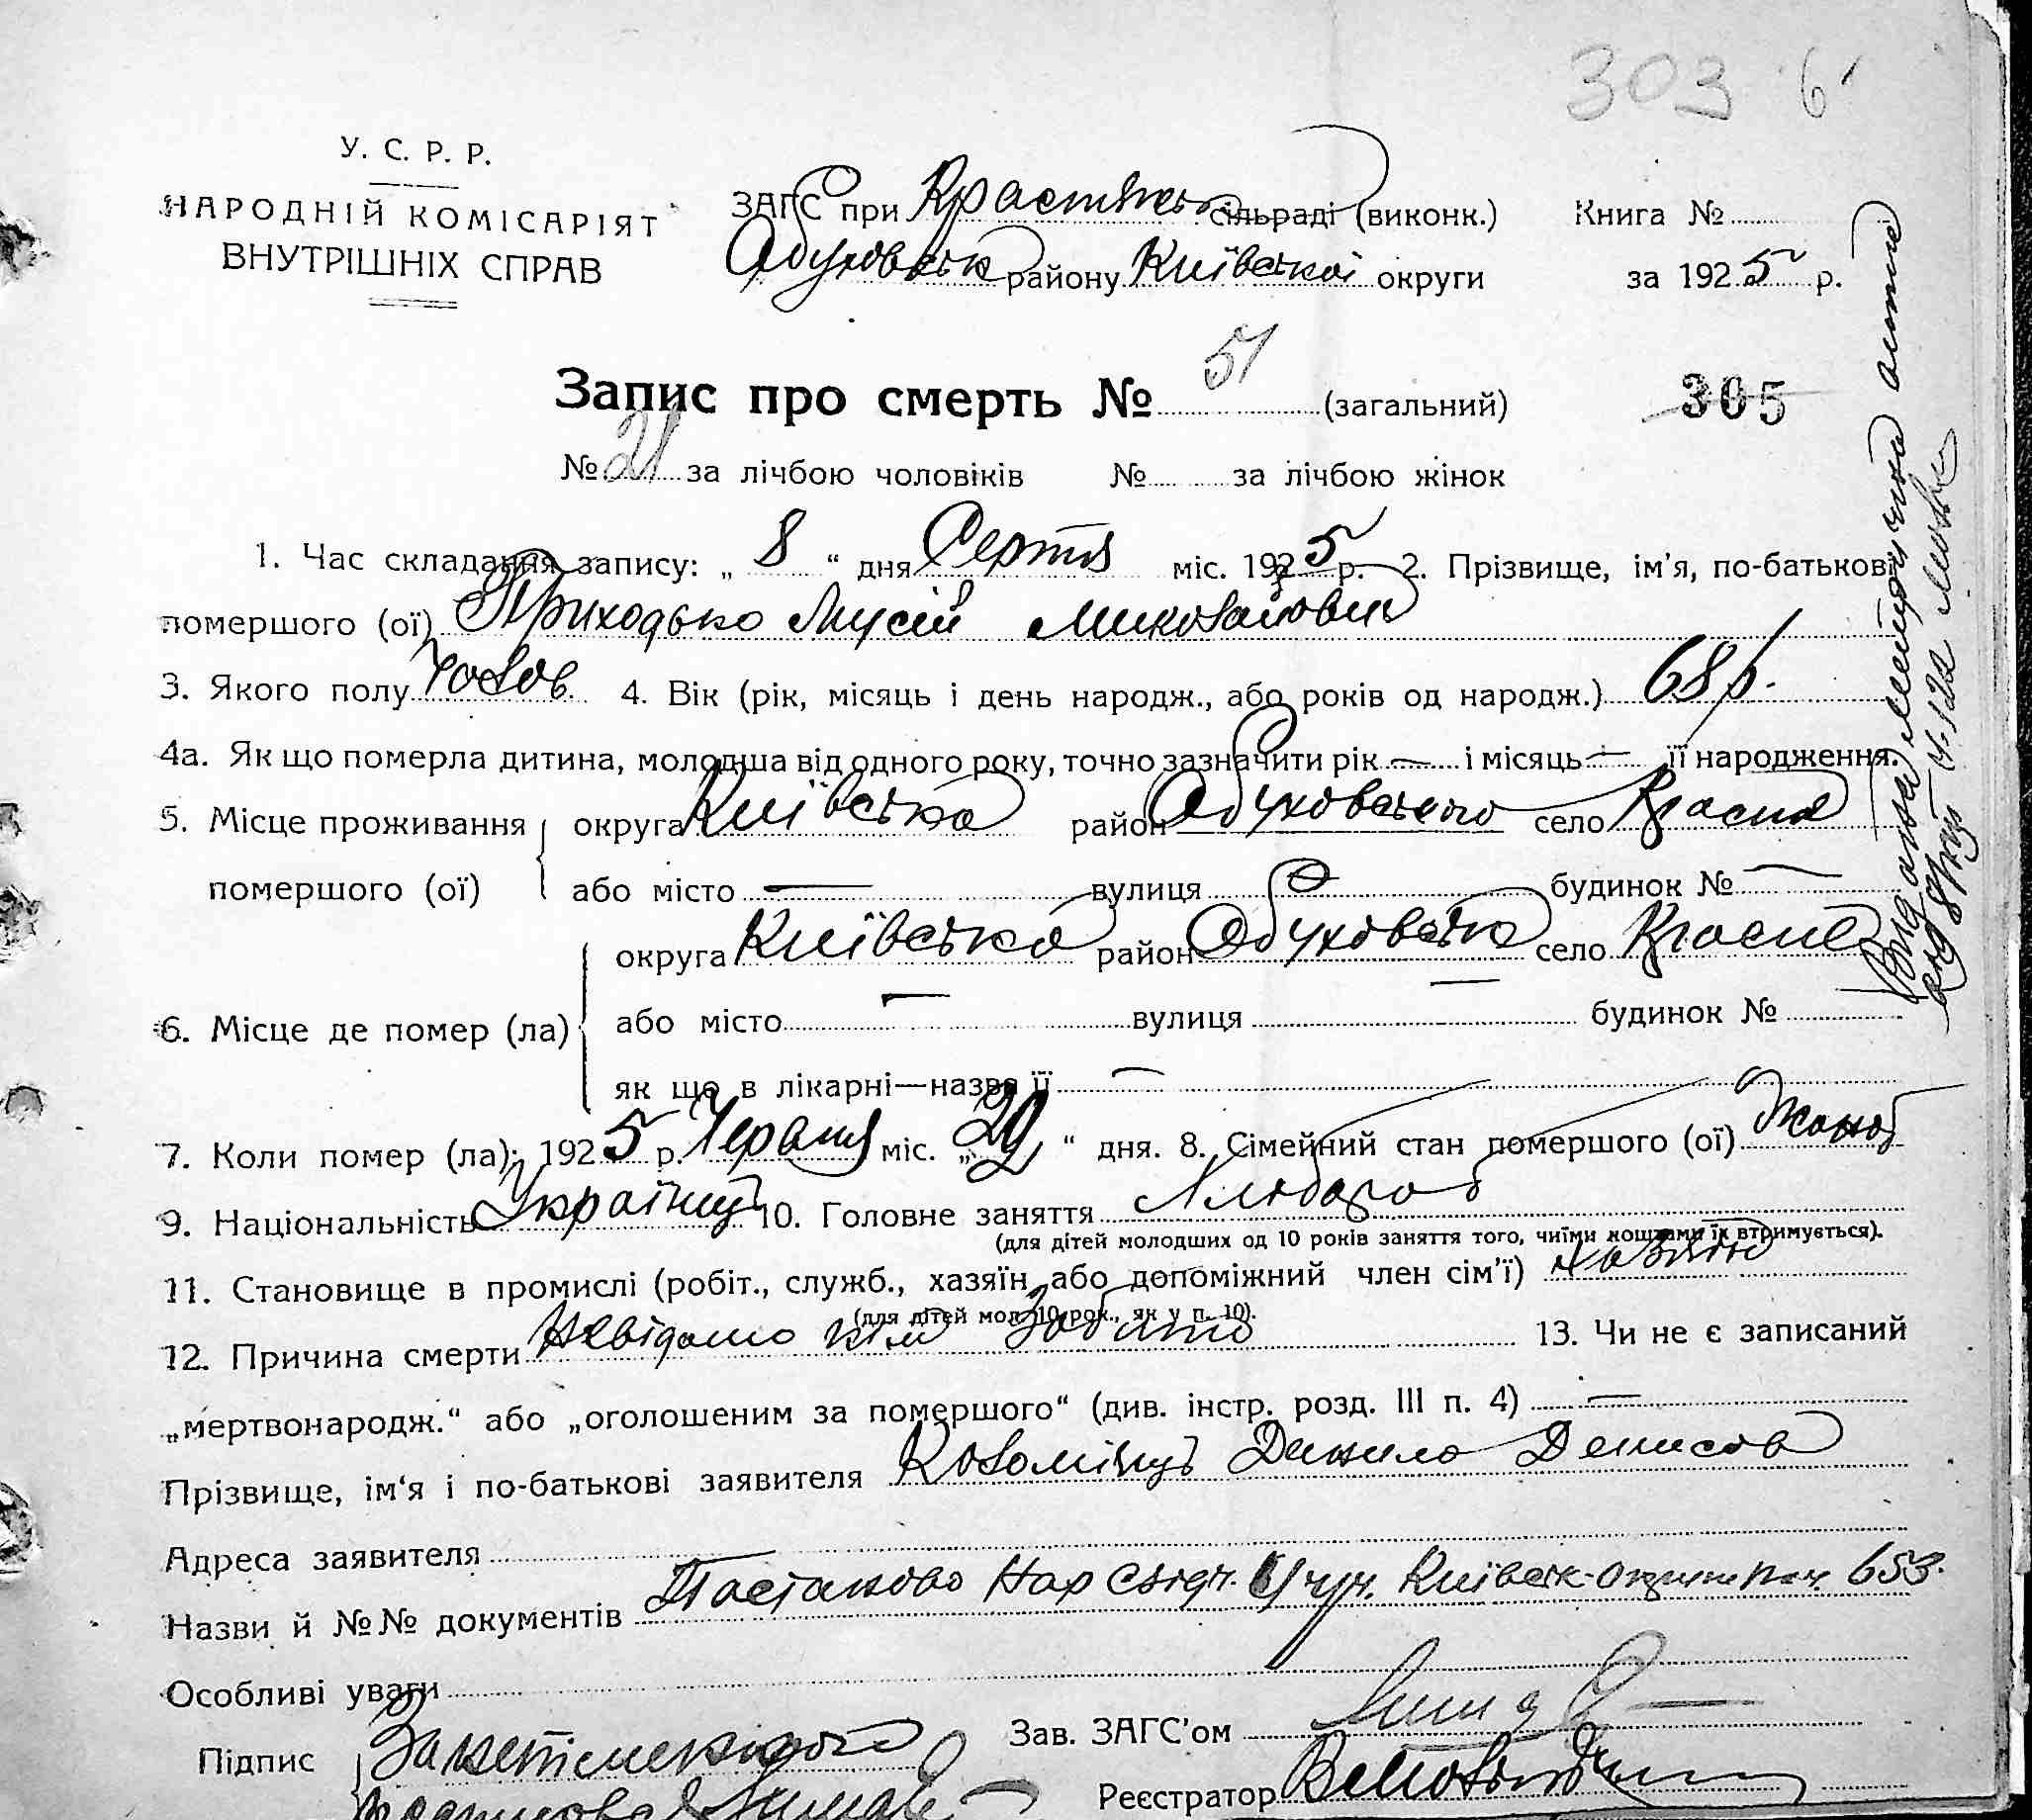 303 6
У. С. Р. Р.
НАРОДНІЙ КОМІСАРІЯТ
ВНУТРІШНІХ СПРАВ
ЗАГС при сільраді (виконк.) Книга №
Обуховськ району Київської округи за 1925 р.
Запис про смерть № 51 (загальний) 305
№ 21 за лічбою чоловіків № за лічбою жінок
1. Час складання запису: „ 8 “ дня Серпня міс. 1925 р. 2. Прізвище, ім’я, по-батькові
помершого (ої) Приходько Мусій Миколайович
3. Якого полу Чолов. 4. Вік (рік, місяць і день народж., або років од народж.) 68 р.
4а. Як що померла дитина, молодша від одного року, точно зазначити рік — і місяць — її народження.
5. Місце проживання округа Київська район Обуховського село Красна
помершого (ої) або місто — вулиця будинок № —
округа Київська район Обуховськ село Красна
6. Місце де помер (ла) або місто — вулиця — будинок №
як що в лікарні—назва її —
7. Коли помер (ла): 1925 р. Червня міс. „ 29 “ дня. 8. Сімейний стан помершого (ої) Жонат
9. Національність Українц 10. Головне заняття Хлібороб
(для дітей молодших од 10 років заняття того, чиїми коштами їх втримується).
11. Становище в промислі (робіт., служб., хазяїн або допоміжний член сім’ї) Хазяїн
(для дітей мол. 10 рок., як у п. 10).
12. Причина смерти Невідомо ким забито 13. Чи не є записаний
„мертвонародж.“ або „оголошеним за помершого“ (див. інстр. розд. III п. 4) —
Прізвище, ім‘я і по-батькові заявителя Коломієць Данило Денисов
Адреса заявителя
Назви й №№ документів Постанова Нар Слідч. уч. Київськ. 653.
Особливі уваги
Підпис Зав. ЗАГС’ом
Реєстратор